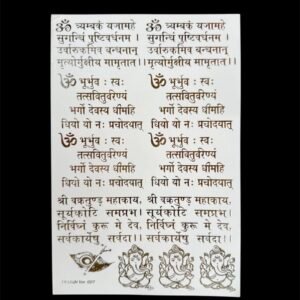 ॐ त्र्यम्बकं यजामहे
सुगन्धिं पुष्टिवर्धनम ।
उर्वारुकमिव बन्धनान्
मृत्योर्मुक्षीय मामृतात।।
ॐ त्र्यम्बकं यजामहे
सुगन्धिं पुष्टिवर्धनम ।
उर्वारुकमिव बन्धनान्
मृत्योर्मुक्षीय मामृतात।।
ॐ भूर्भुवः स्वः
तत्सवितुर्वरेण्यं
भर्गो देवस्य धीमहि
धियो यो नः प्रचोदयात्
ॐ भूर्भुवः स्वः
तत्सवितुर्वरेण्यं
भर्गो देवस्य धीमहि
धियो यो नः प्रचोदयात्
ॐ भूर्भुवः स्वः
तत्सवितुर्वरेण्यं
भर्गो देवस्य धीमहि
धियो यो नः प्रचोदयात्
ॐ भूर्भुवः स्वः
तत्सवितुर्वरेण्यं
भर्गो देवस्य धीमहि
धियो यो नः प्रचोदयात्
श्री वक्रतुण्ड महाकाय,
सूर्यकोटि समप्रभ।
निर्विघ्नं कुरू मे देव,
सर्वकार्येषु सर्वदा।।
श्री वक्रतुण्ड महाकाय,
सूर्यकोटि समप्रभ।
निर्विघ्नं कुरू मे देव,
सर्वकार्येषु सर्वदा।।